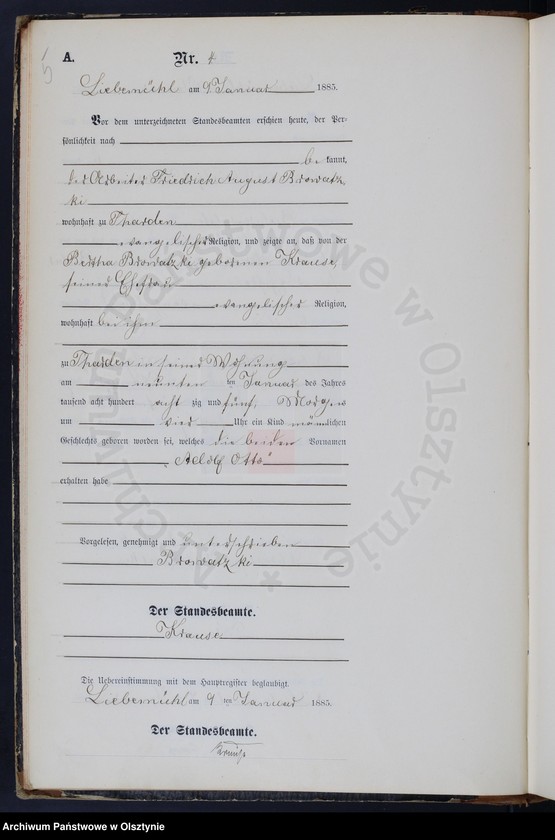 A. Nr. 4
Liebemühl am 9. Januar 1885.
Vor dem unterzeichneten Standesbeamten erschien heute, der Per-
sönlichkeit nach
be kannt,
der Arbeiter Friedrich August Browatz
ki
wohnhaft zu Tharden
evangelischer Religion, und zeigte an, daß von der
Bertha Browatzki gebornen Krause,
seiner Ehefrau
evangelischer Religion,
wohnhaft bei ihm
zu Tharden in seiner Wohnung
am neunten ten Januar des Jahres
tausend acht hundert acht zig und fünf, Morgens
um vier Uhr ein Kind männlichen
Geschlechts geboren worden sei, welches die beiden Vornamen
„Adolf Otto“
erhalten habe
Vorgelesen, genehmigt und unterschrieben
Browatzki
Der Standesbeamte.
Krause
Die Uebereinstimmung mit dem Hauptregister beglaubigt.
Liebemühl am 9 ten Januar 1885.
Der Standesbeamte.
Krause
Archiwum Państwowe w Olsztynie
Archiwum Państwowe w Olsztynie *